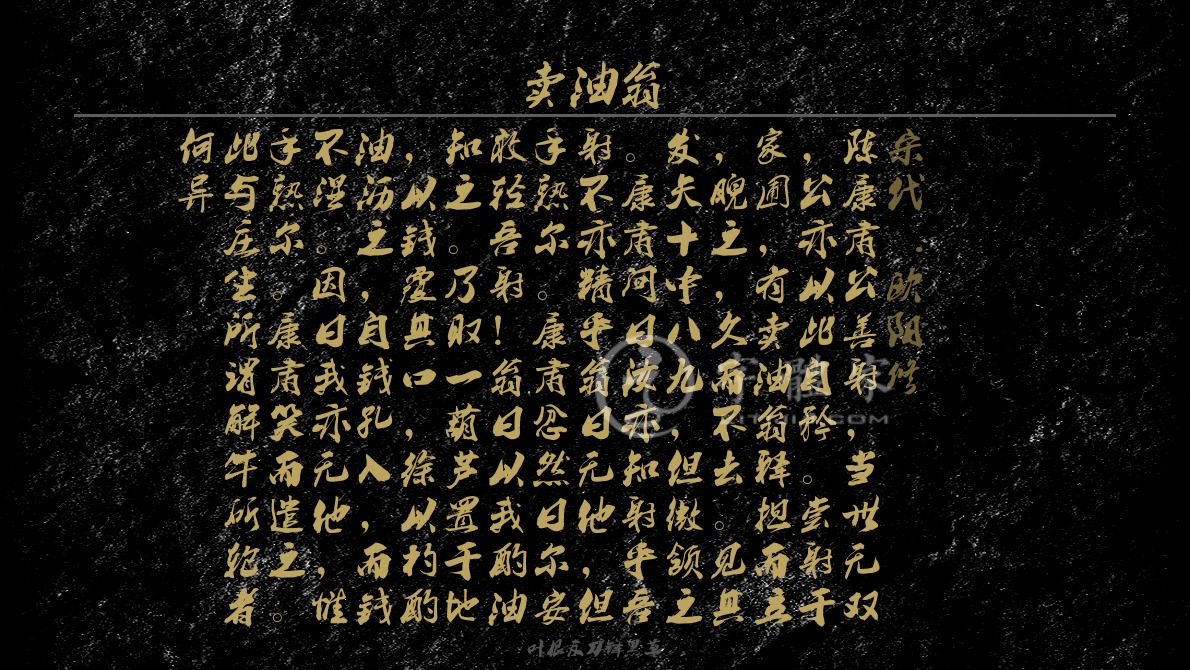 卖油翁
宋代·欧阳修
陈康肃公善射,当世无双
,公亦以此自矜。尝射于
家圃,有卖油翁释担而立
,睨之,久而不去。见其
发矢十中八九,但微颔之
。康肃问曰汝亦知射乎吾
射不亦精乎翁曰无他但
手熟尔。康肃忿然曰尔安
敢轻吾射!翁曰以我酌油
知之。乃取一葫芦置于地
,以钱覆其口,徐以杓酌
油沥之,自钱孔入,而钱
不湿。因曰我亦无他,惟
手熟尔。康肃笑而遣之。
此与庄生所谓解牛斫轮者
何异
字體家
叶根友刀锋黑草